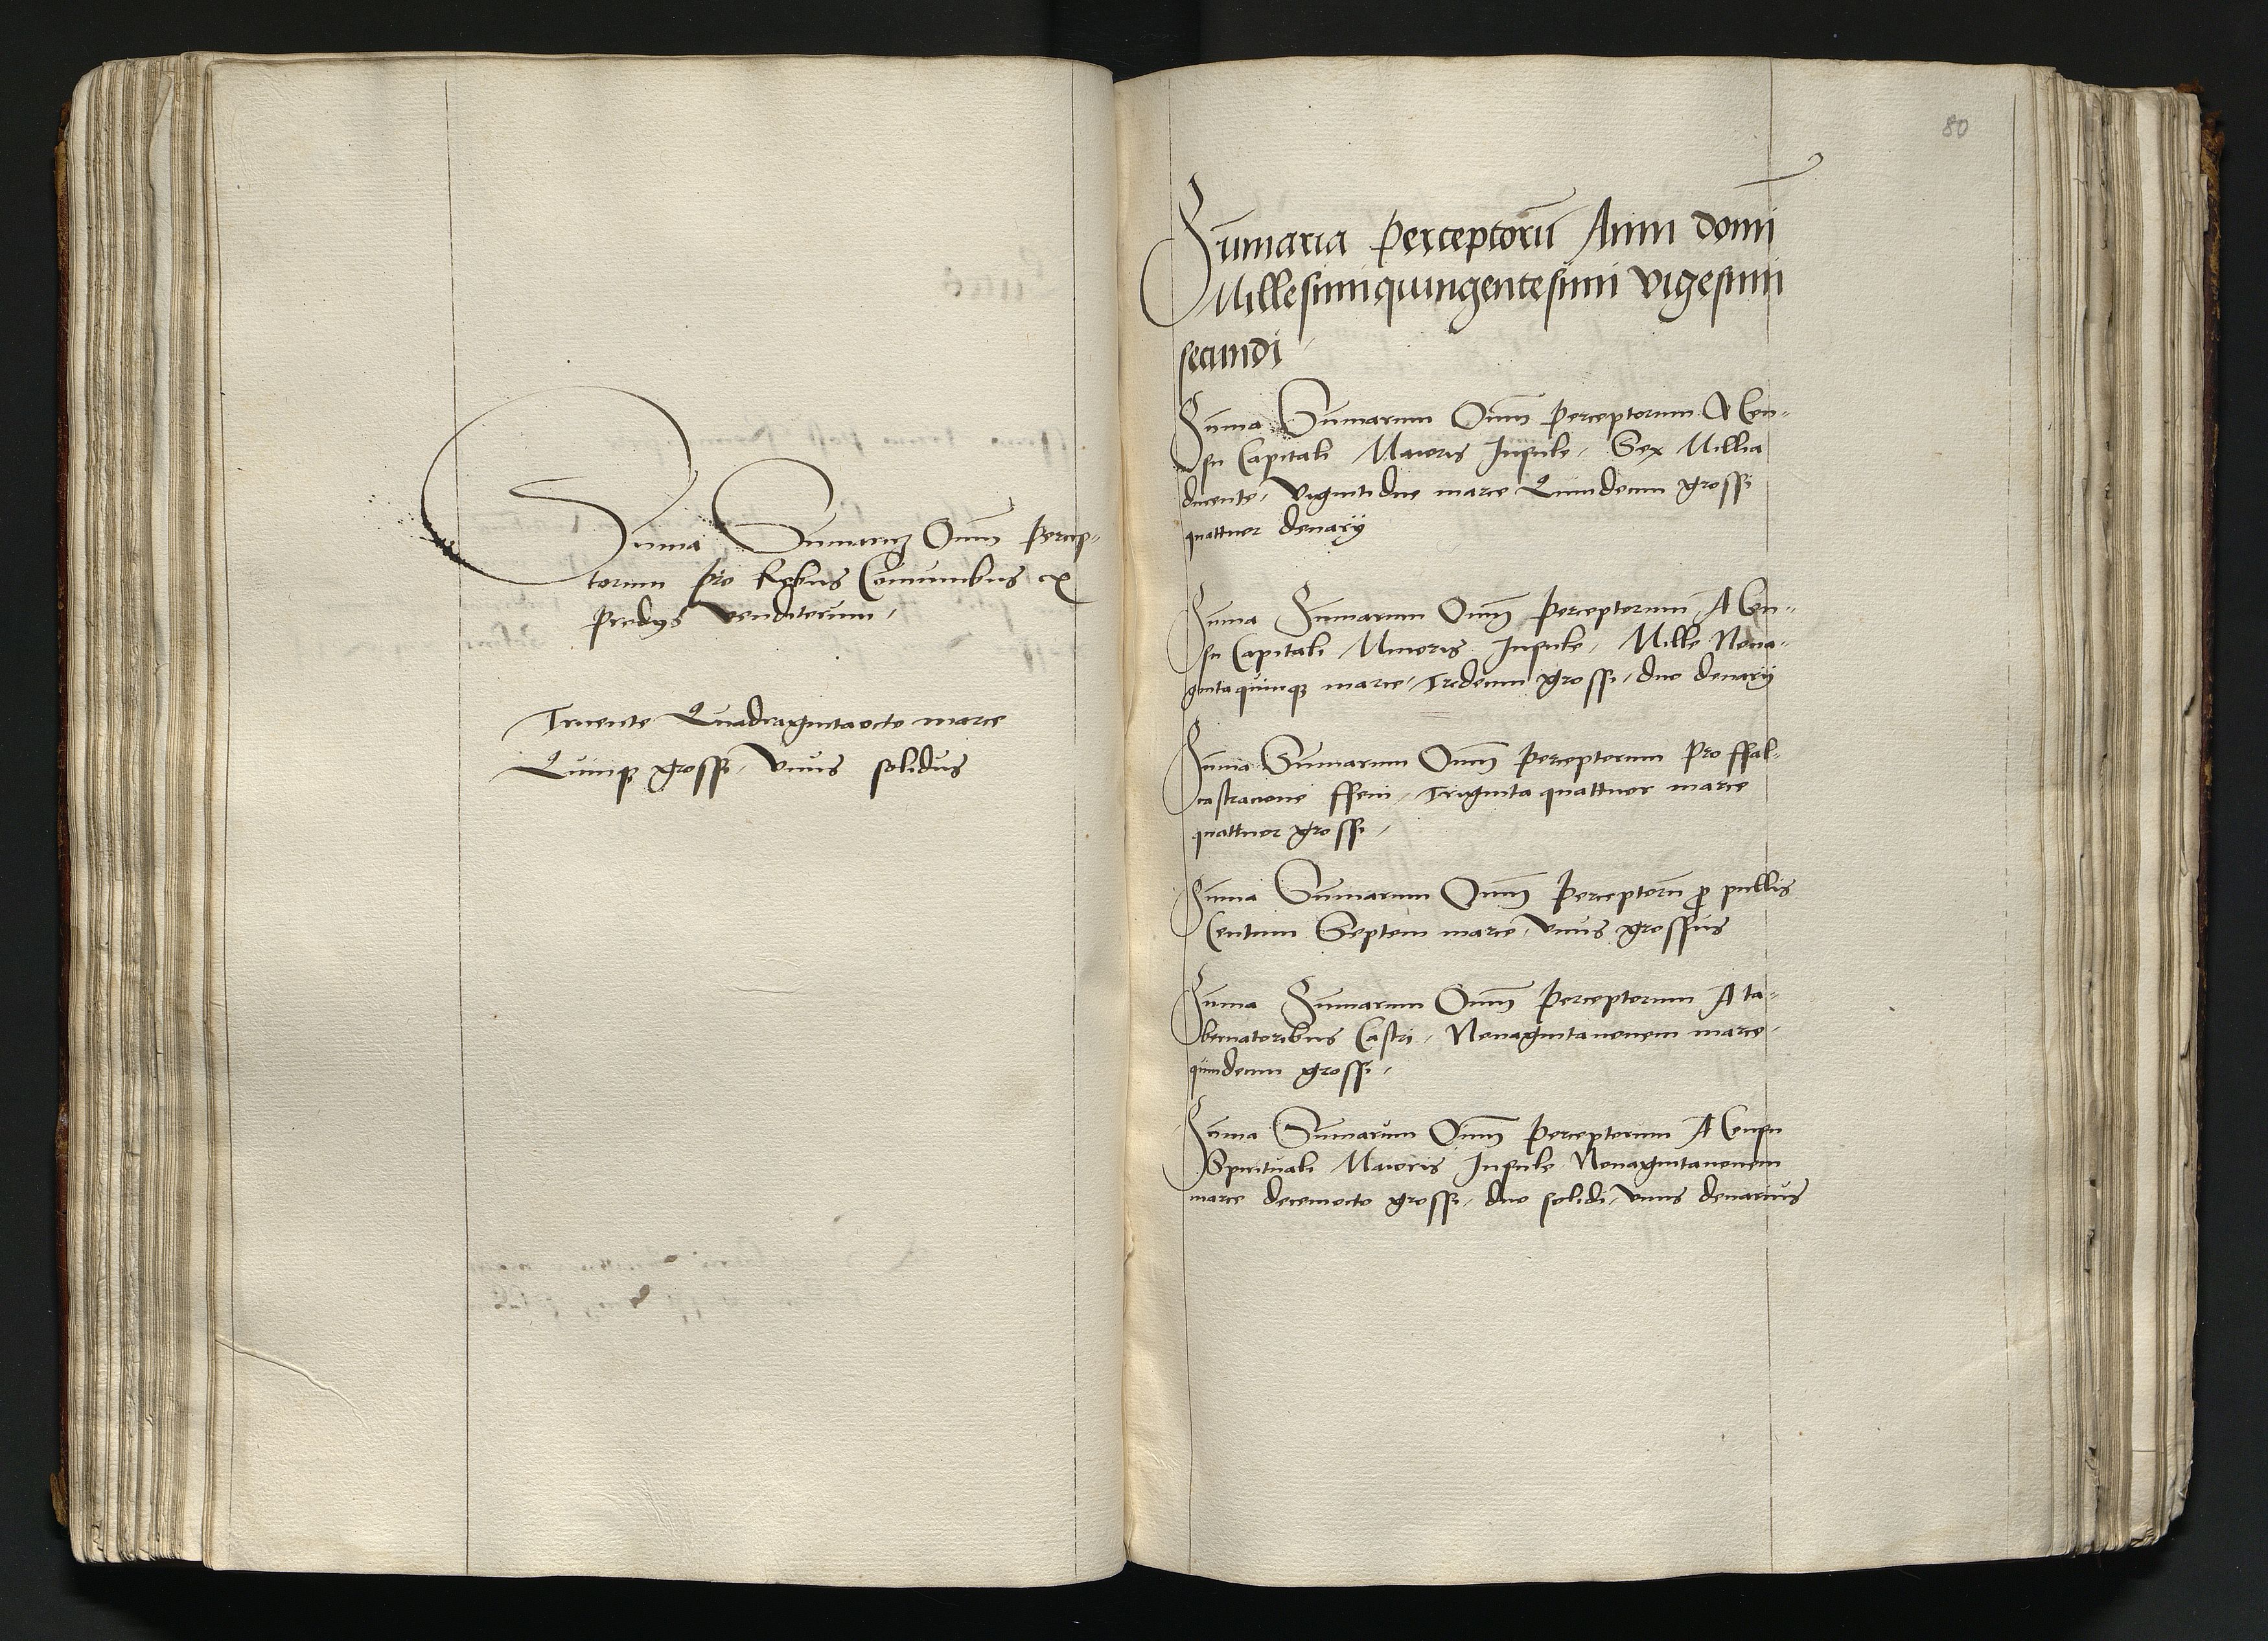 Suma Sumarum Om̄ Percep-
torum Pro Rebus Comunibus ex
Predys venditorum,
Tricente Quadragintaocto marce
Quinqꝫ grossi, vnus solidus
80
Sūmaria Perceptorū Anni domī
Millesimiquingentesimi vigesimi
secundi
Suma Sumarum Om̄ Perceptorum A Cen-
su Capitali Maioris Insule, Sex Millia
ducente, viginti due marce Quindecim grossi
quattuor denary
Suma Sumarum Om̄ Perceptorum A Cen-
su Capitali Minoris Insule, Mille Nona-
gintaquinqꝫ marce, Tredecim grossi, duo denary
Suma Sumarum Om̄ Perceptorum Pro ffal-
castracione ffeni, Triginta quattuor marce
quattuor grossi,
Suma Sumarum Om̄ Perceptorū ꝓ pullis
Centum Septem marce, vnus grossus
Suma Sumarum Om̄ Perceptorum A ta-
bernatoribus Castri, Nonagintanouem marce,
quindecim grossi,
Suma Sumarum Om̄ Perceptorum A Censu
Spirituali Maioris Insule Nonagintanouem
marce decemocto grossi, duo solidi, vnus denarius